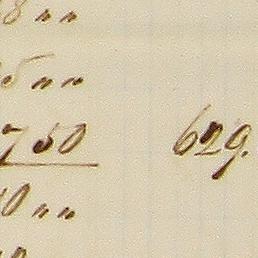 8 " "
5 " "
750 629.
0 " "